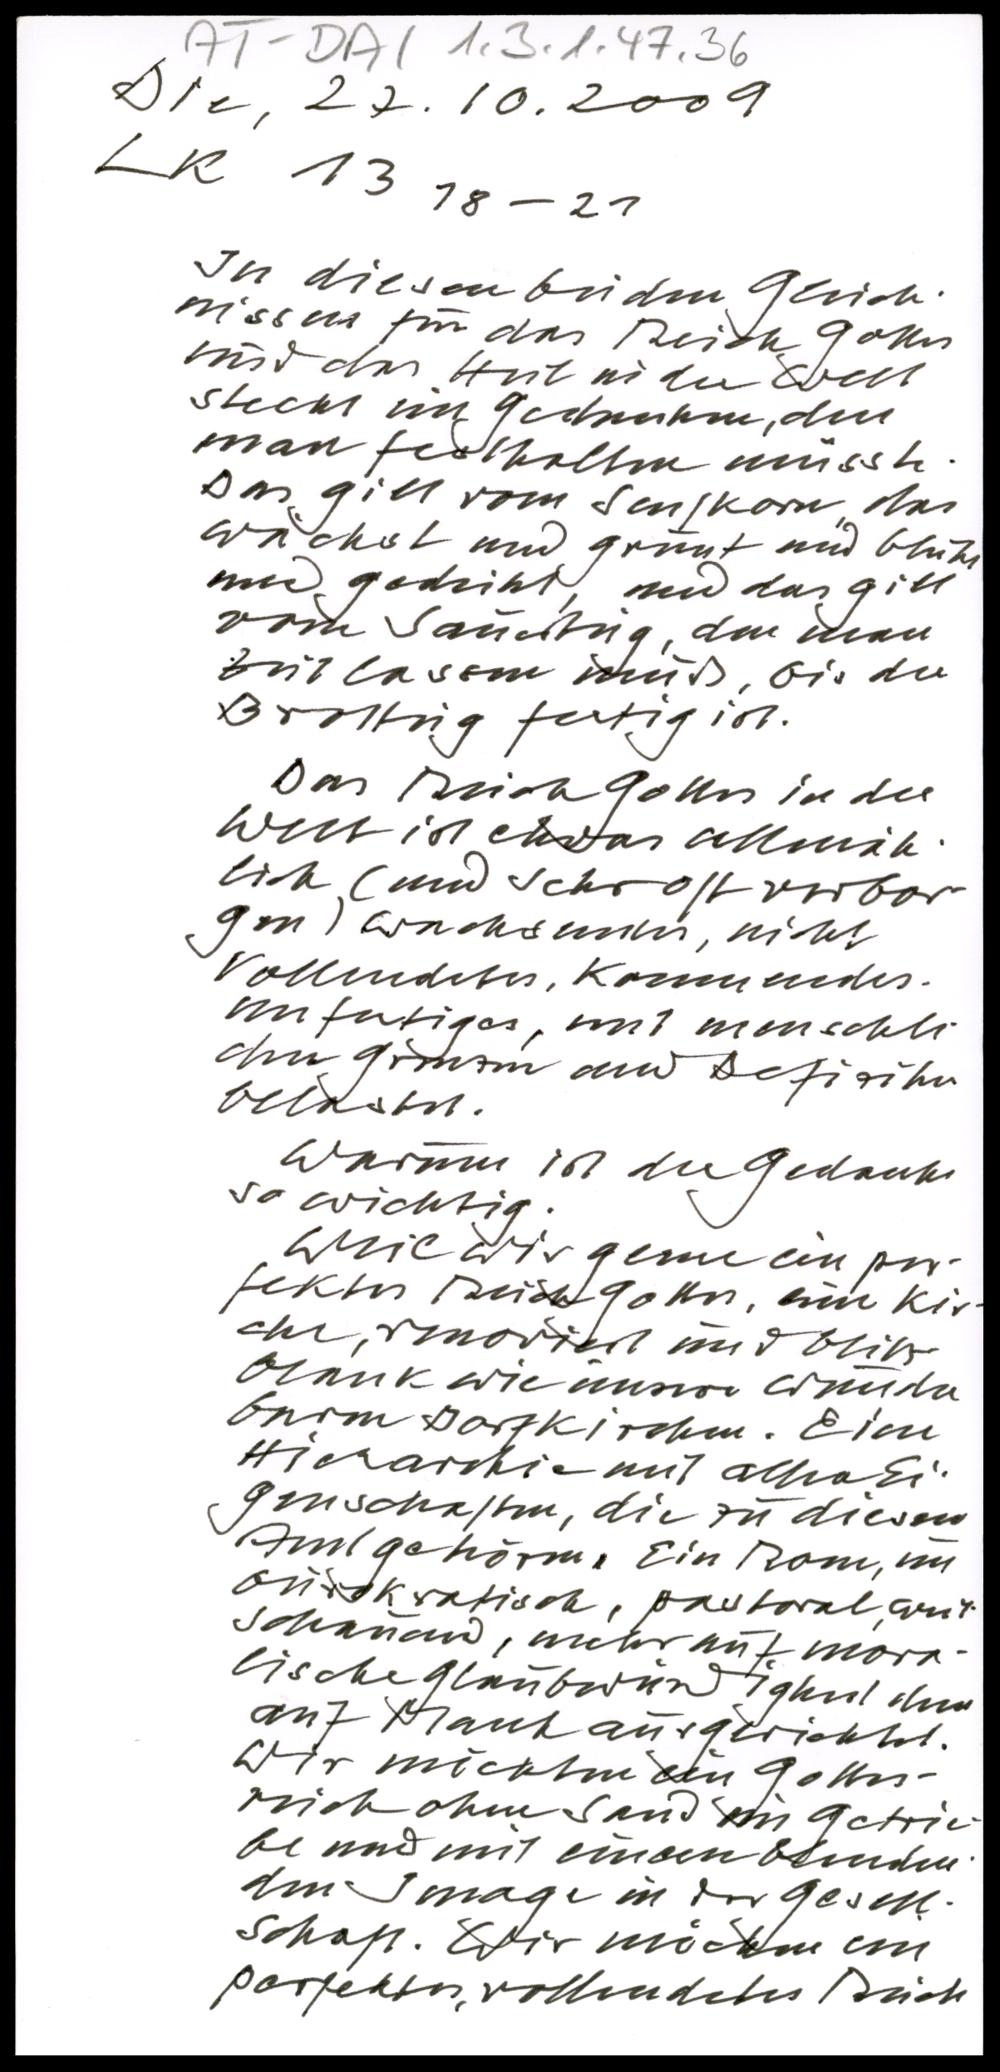 AT-DAI 1.3.1.47.36
Die, 27.10.2009
LK 13 18-21
In diesen beiden Gleich-
nissen für das Reich Gottes
und das Heil in der Welt
steckt ein Gedanken, den
man festhalten müsste.
Das gilt vom Senfkorn, das
wächst und grünt und blüht
und gedeiht, und das gilt
vom Sauerteig, den man
Zeit lassen muß, bis der
Brotteig fertig ist.
Das Reich Gottes in der
Welt ist etwas allmäh-
lich (und sehr oft verbor-
gen) wachsendes, nicht
Vollendetes, Kommendes.
Unfertiges, mit menschli
chen Grenzen und Defiziten
belastet.
Warum ist der Gedanke
so wichtig.
Weil wir gerne ein per-
fektes Reich Gottes, eine Kir-
che, renoviert und blitz
blank wie unsere wunder
baren Dorfkirchen. Eine
Hierarchie mit allen Ei-
genschaften, die zu diesem
Amt gehören. Ein Rom, un
bürokratisch, pastoral, weit
schauend, mehr auf mora-
lische Glaubwürdigkeit denn
auf Macht ausgerichtet.
Wir möchten ein Gottes-
reich ohne Sand im Getrie-
be und mit einem blenden-
den Image in der Gesell-
schaft. Wir möchten ein
perfektes, vollendetes Reich